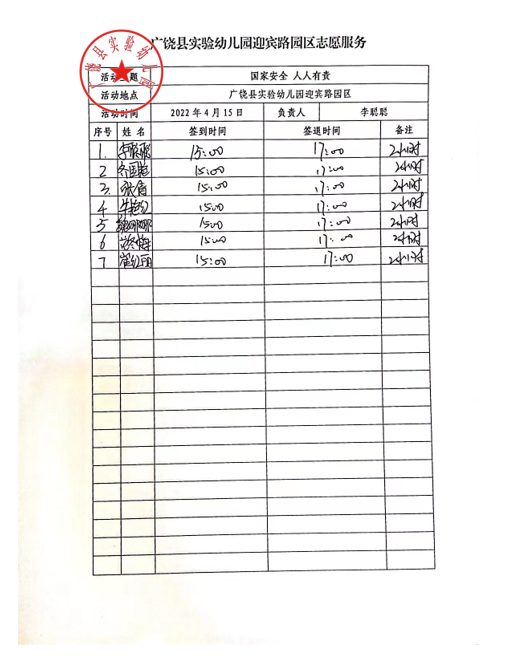 广饶县实验幼儿园迎宾路园区志愿服务
活动主题 国家安全 人人有责
活动地点 广饶县实验幼儿园迎宾路园区
活动时间 2022年4月15日 负责人 李聪聪
序号 姓名 签到时间 签退时间 备注
1. 李聪聪 15:00 17:00 2小时
2 15:00 17:00 2小时
3. 15:00 17:00 2小时
4 15:00 17:00 2小时
5 15:00 17:00 2小时
6 15:00 17:00 2小时
7 崔红丽 15:00 17:00 2小时